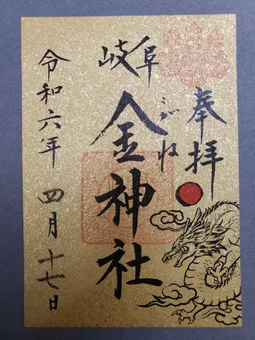 奉拝
岐阜
金神社
こがね
令和六年 四月 十七日